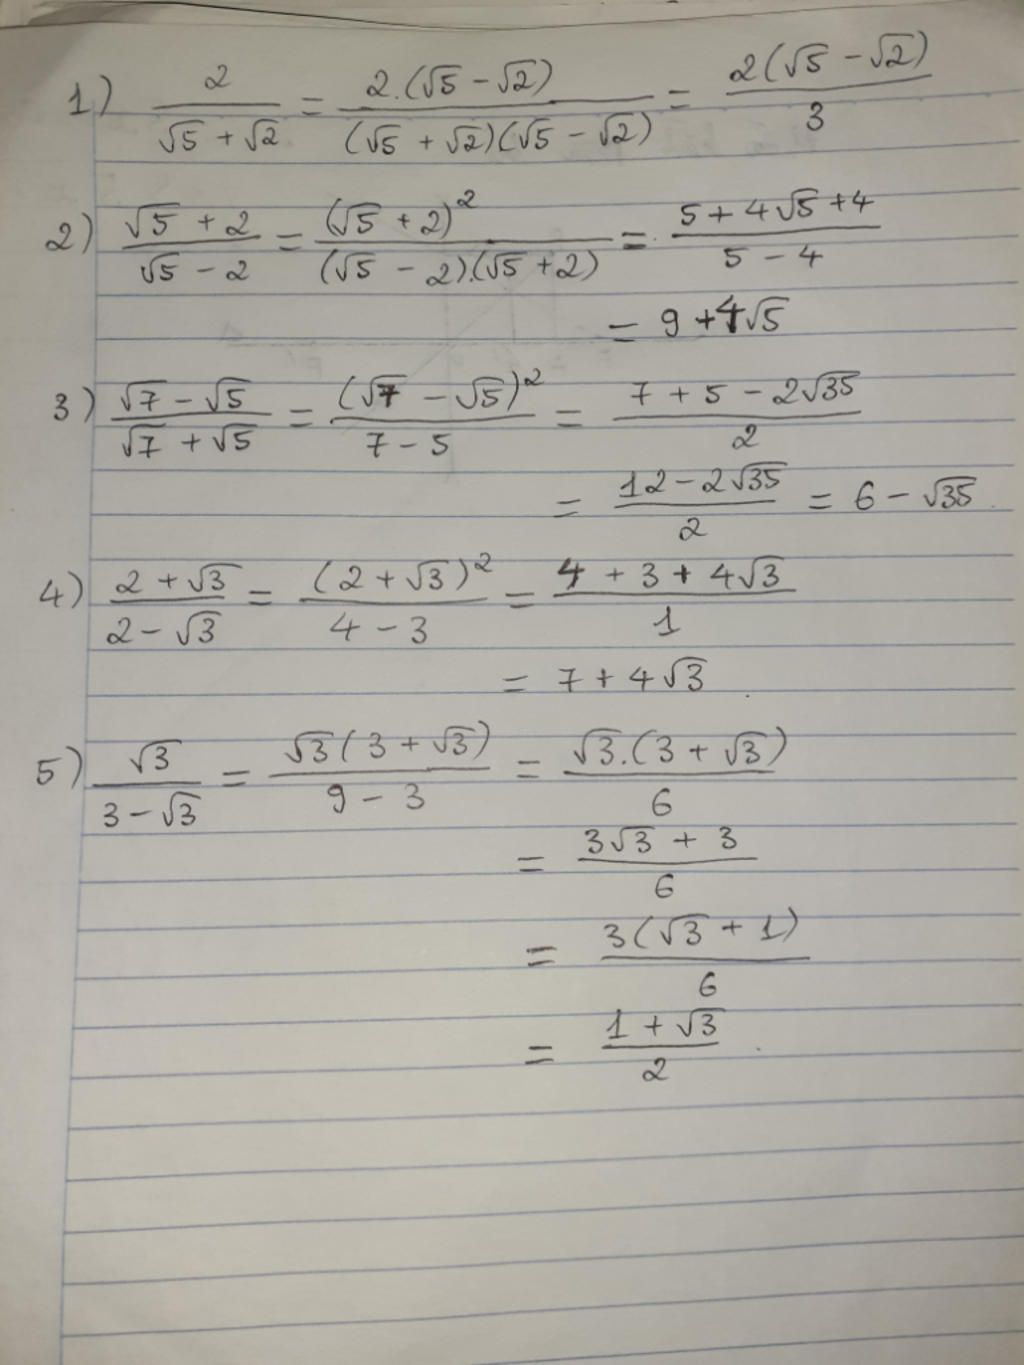 1) 2/(√5 + √2) = 2.(√5 - √2)/((√5 + √2)(√5 - √2)) = 2(√5 - √2)/3
2) (√5 + 2)/(√5 - 2) = (√5 + 2)²/((√5 - 2).(√5 + 2)) = (5 + 4√5 + 4)/(5 - 4)
= 9 + 4√5
3) (√7 - √5)/(√7 + √5) = (√7 - √5)²/(7 - 5) = (7 + 5 - 2√35)/2
= (12 - 2√35)/2 = 6 - √35
4) (2 + √3)/(2 - √3) = (2 + √3)²/(4 - 3) = (4 + 3 + 4√3)/1
= 7 + 4√3
5) √3/(3 - √3) = √3(3 + √3)/(9 - 3) = √3.(3 + √3)/6
= (3√3 + 3)/6
= 3(√3 + 1)/6
= (1 + √3)/2